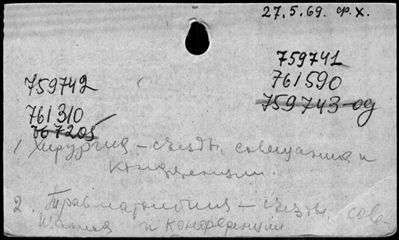 27.5.69. ф.х.
759742
761310
767205
759741
761590
759743-од
1. Хирургия – съезды, совещания и
конференции.
2. Травматология – съезды, сове-
щания и конференции